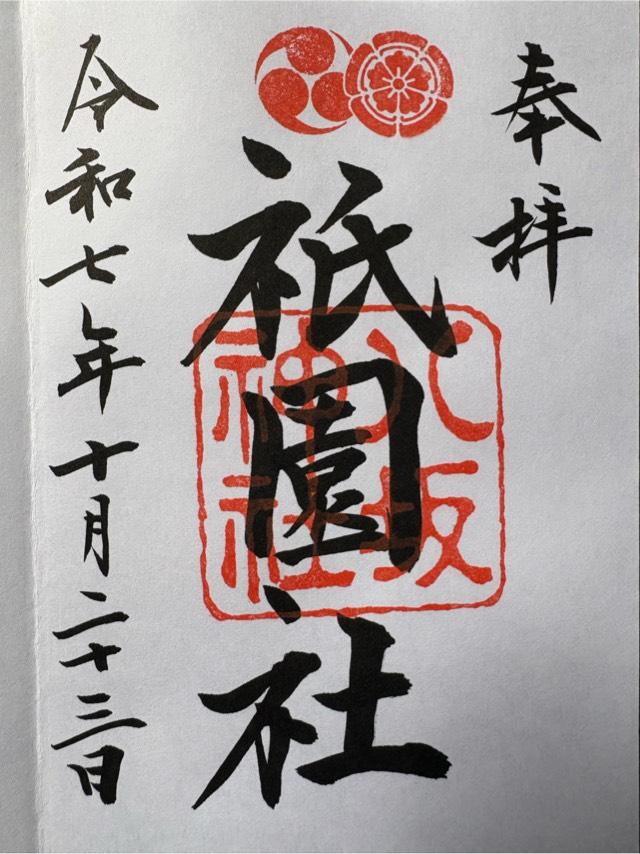 奉拝
八坂神社
祇園社
令和七年十月二十三日